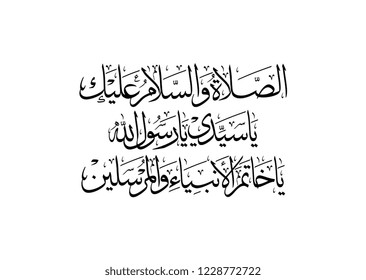 الصَّلَاةُ وَالسَّلَامُ عَلَيْكَ
يَا سَيِّدِي يَا رَسُولَ اللهِ
يَا خَاتَمَ الْأَنْبِيَاءِ وَالْمُرْسَلِينَ
shutterstock.com · 1228772722